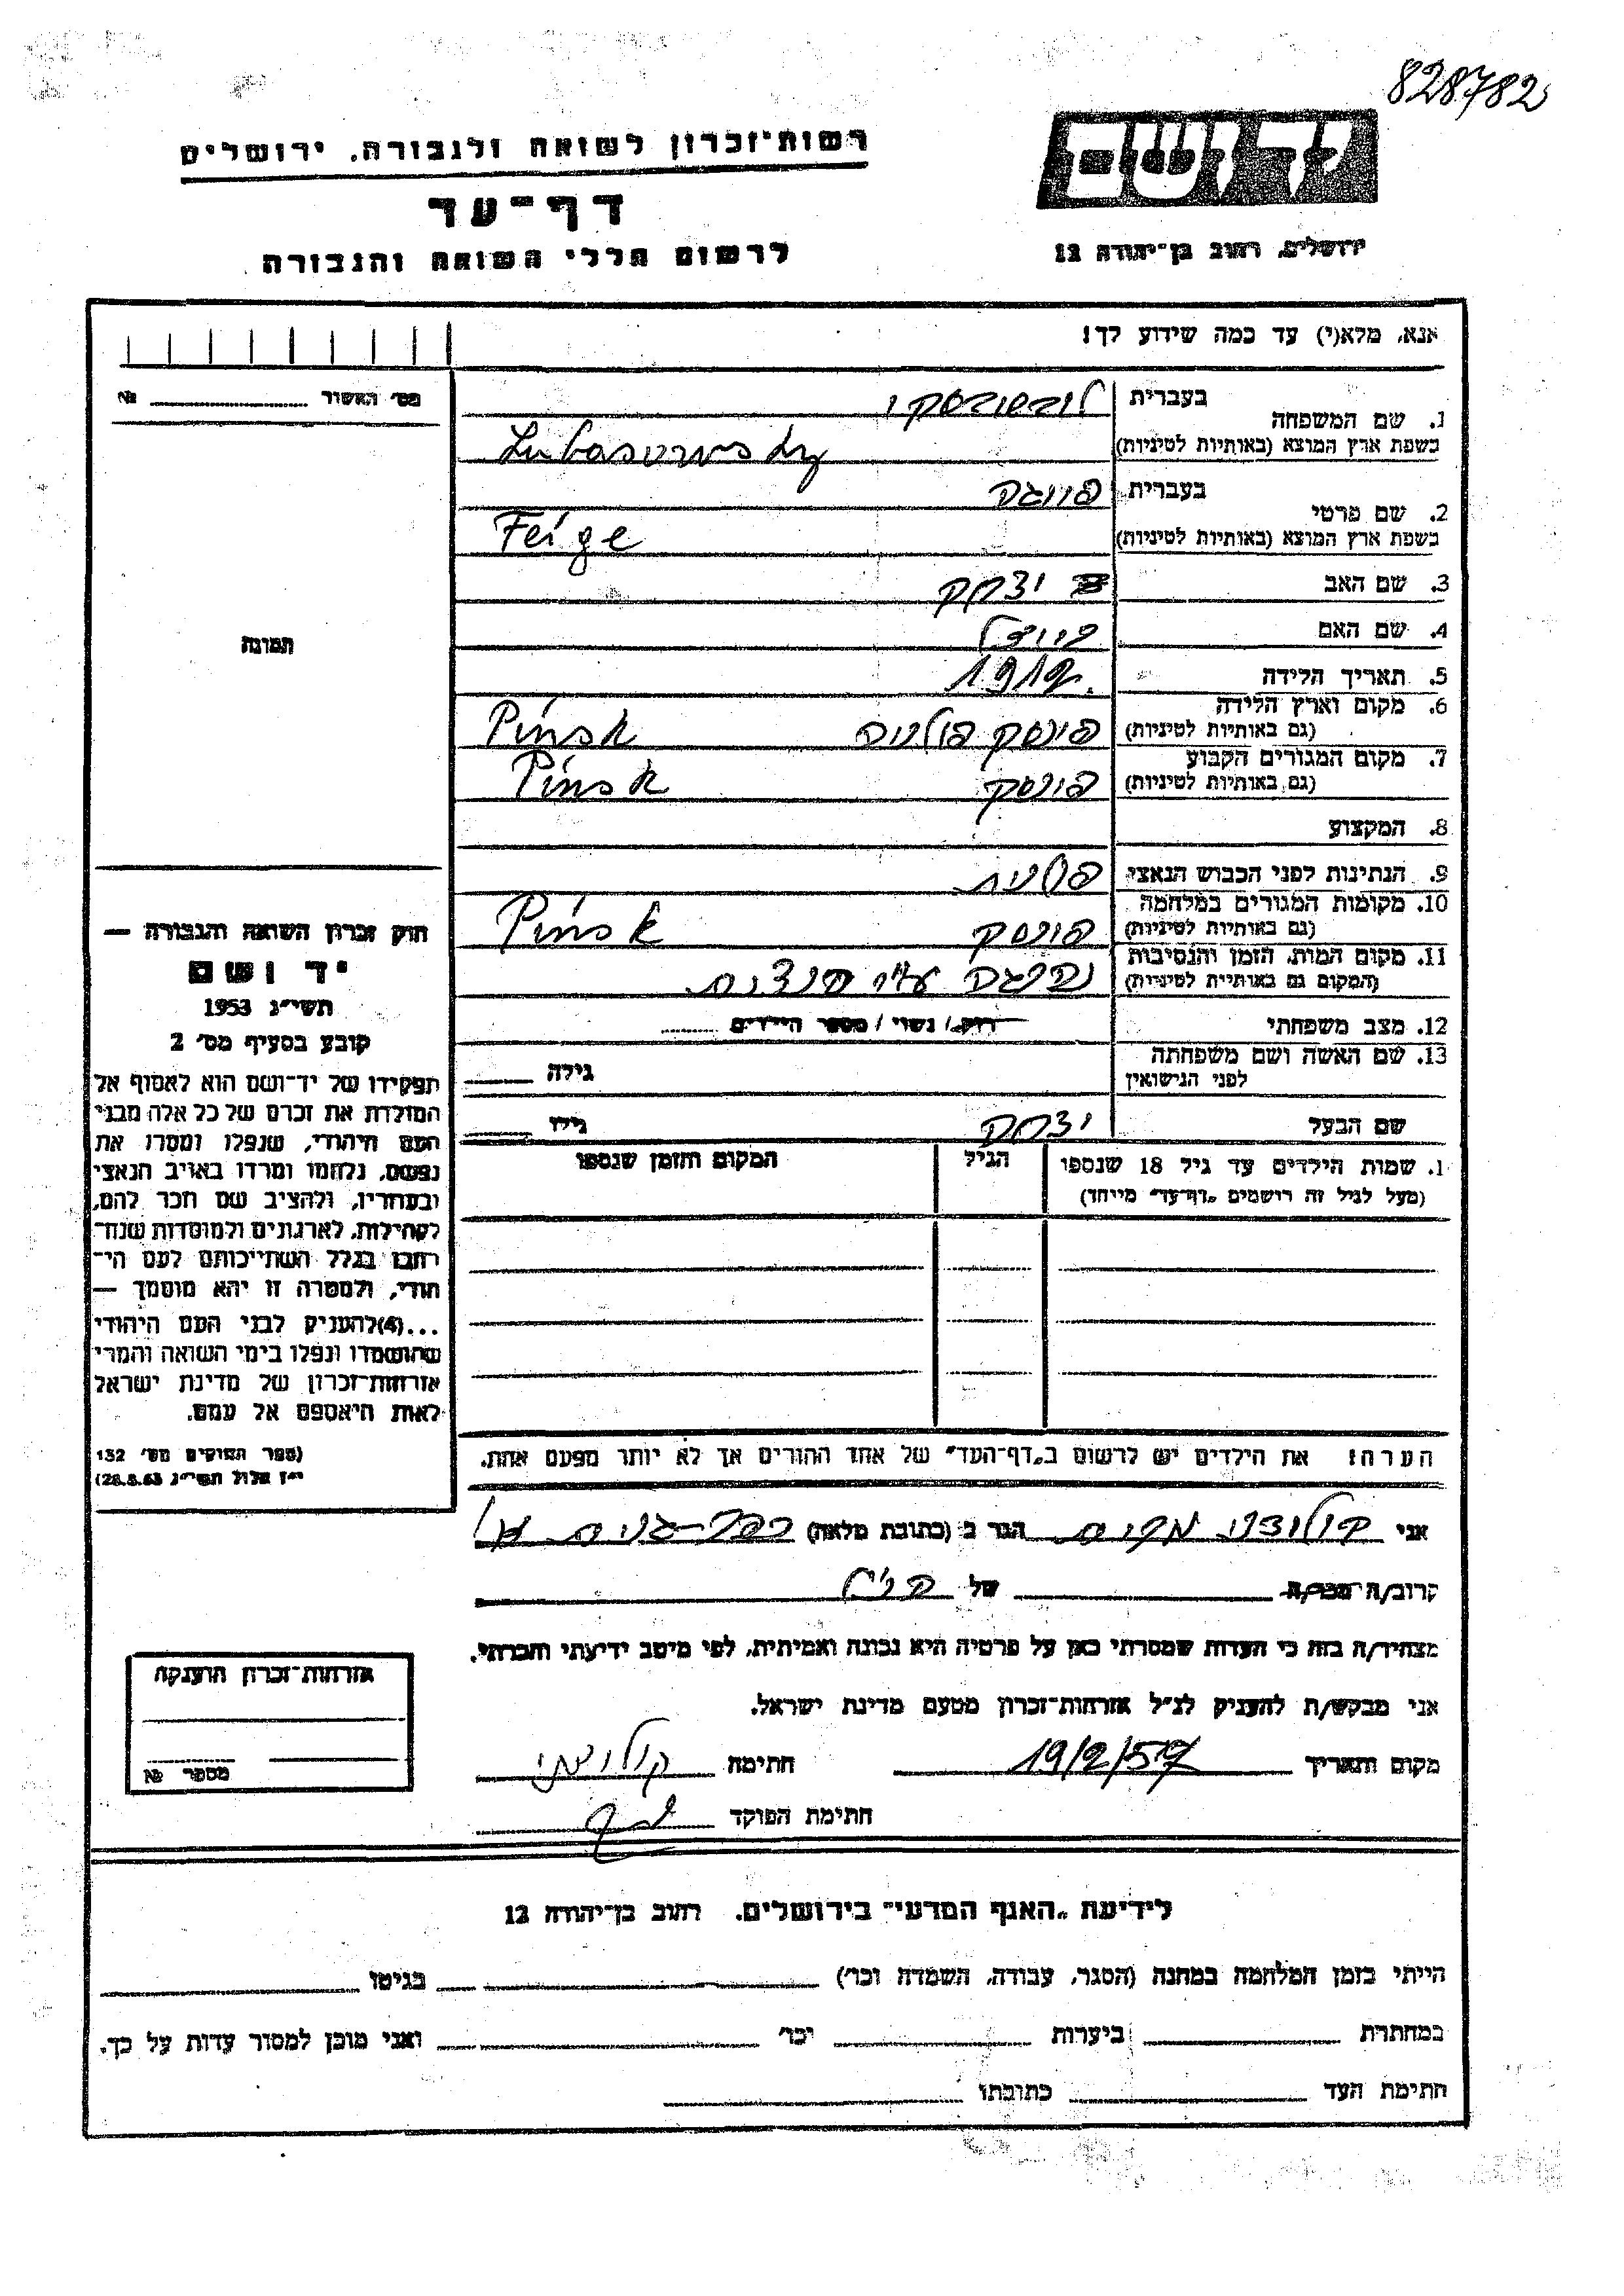 828782
רשות־זכרון לשואה ולגבורה, ירושלים
יד ושם
דף־עד
ירושלים, רחוב בן־יהודה 12
לרשום חללי השואה והגבורה
אנא, מלא(י) עד כמה שידוע לך!
מס׳ האשור № 
1. שם המשפחה
בעברית
בשפת ארץ המוצא (באותיות לטיניות)
Lubasowsky
2. שם פרטי
בעברית
פייגה
בשפת ארץ המוצא (באותיות לטיניות)
Feige
3. שם האב יצחק
4. שם האם
5. תאריך הלידה 1912
6. מקום וארץ הלידה
(גם באותיות לטיניות)
פינסק פולניה Pinsk
7. מקום המגורים הקבוע
(גם באותיות לטיניות)
פינסק Pinsk
8. המקצוע
9. הנתינות לפני הכבוש הנאצי פולנית
10. מקומות המגורים במלחמה
(גם באותיות לטיניות)
פינסק Pinsk
11. מקום המות, הזמן והנסיבות
(המקום גם באותיות לטיניות)
נהרגה ע״י הנצים
12. מצב משפחתי רווק/ נשוי/ מספר הילדים
13. שם האשה ושם משפחתה
לפני הנישואין
גילה
שם הבעל יצחק גילו
תמונה
חוק זכרון השואה והגבורה —
יד ושם
תשי״ג 1953
קובע בסעיף מס׳ 2
תפקידו של יד־ושם הוא לאסוף אל
המולדת את זכרם של כל אלה מבני
העם היהודי, שנפלו ומסרו את
נפשם, נלחמו ומרדו באויב הנאצי
ובעוזריו, ולהציב שם וזכר להם,
לקהילות, לארגונים ולמוסדות שנח־
רבו בגלל השתייכותם לעם הי־
הודי, ולמטרה זו יהא מוסמך —
...(4)להעניק לבני העם היהודי
שהושמדו ונפלו בימי השואה והמרי
אזרחות־זכרון של מדינת ישראל
לאות היאספם אל עמם.
(ספר החוקים מס׳ 132
י״ז אלול תשי״ג 28.8.53)
1. שמות הילדים עד גיל 18 שנספו
(מעל לגיל זה רושמים „דף־עד״ מייחד)
הגיל
המקום והזמן שנספו
הערה: את הילדים יש לרשום ב„דף־העד״ של אחד ההורים אך לא יותר מפעם אחת.
אני קולודני הגר ב (כתובת מלאה) כפר־גנים
קרוב/ה מכר/ה של הנ״ל
מצהיר/ה בזה כי העדות שמסרתי כאן על פרטיה היא נכונה ואמיתית, לפי מיטב ידיעתי והכרתי.
אני מבקש/ת להעניק לנ״ל אזרחות־זכרון מטעם מדינת ישראל.
מקום ותאריך 19/2/57 חתימה קולודני
חתימת הפוקד
אזרחות־זכרון הוענקה
מספר №
לידיעת „האגף המדעי״ בירושלים, רחוב בן־יהודה 12
הייתי בזמן המלחמה במחנה (הסגר, עבודה, השמדה וכו׳) בגיטו
במחתרת ביערות וכו׳ ואני מוכן למסור עדות על כך.
חתימת העד כתובתו